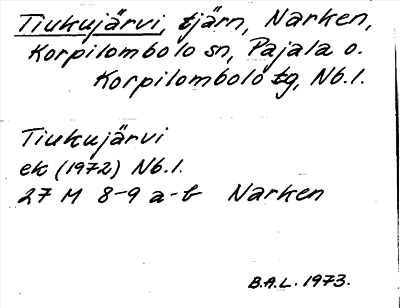 Tiukujärvi, tjärn, Narken,
Korpilombolo sn, Pajala o.
Korpilombolo tg, Nb.l.
Tiukujärvi
ek (1972) Nb.l.
27 M 8-9 a-b Narken
B.A.L. 1973.